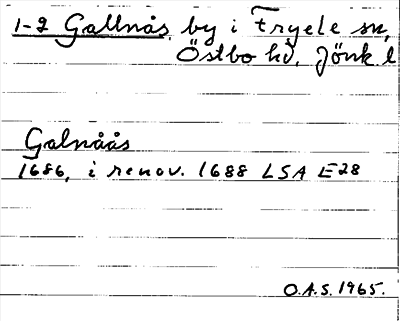 1-2 Gallnås, by i Fryele sn,
Östbo hd, Jönk l
Galnåås
1686, i renov. 1688 LSA E28
O.A.S. 1965.